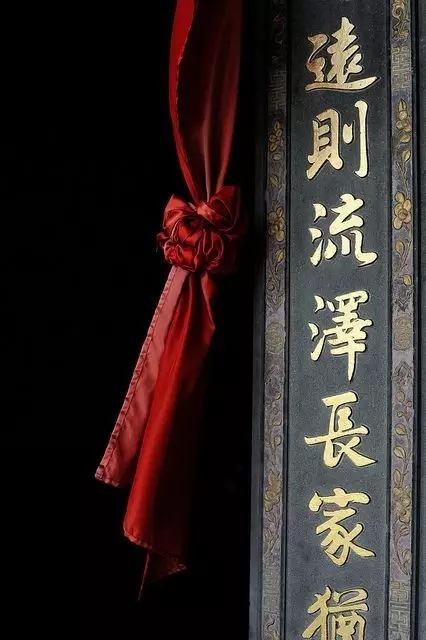 遠則流澤長家猶